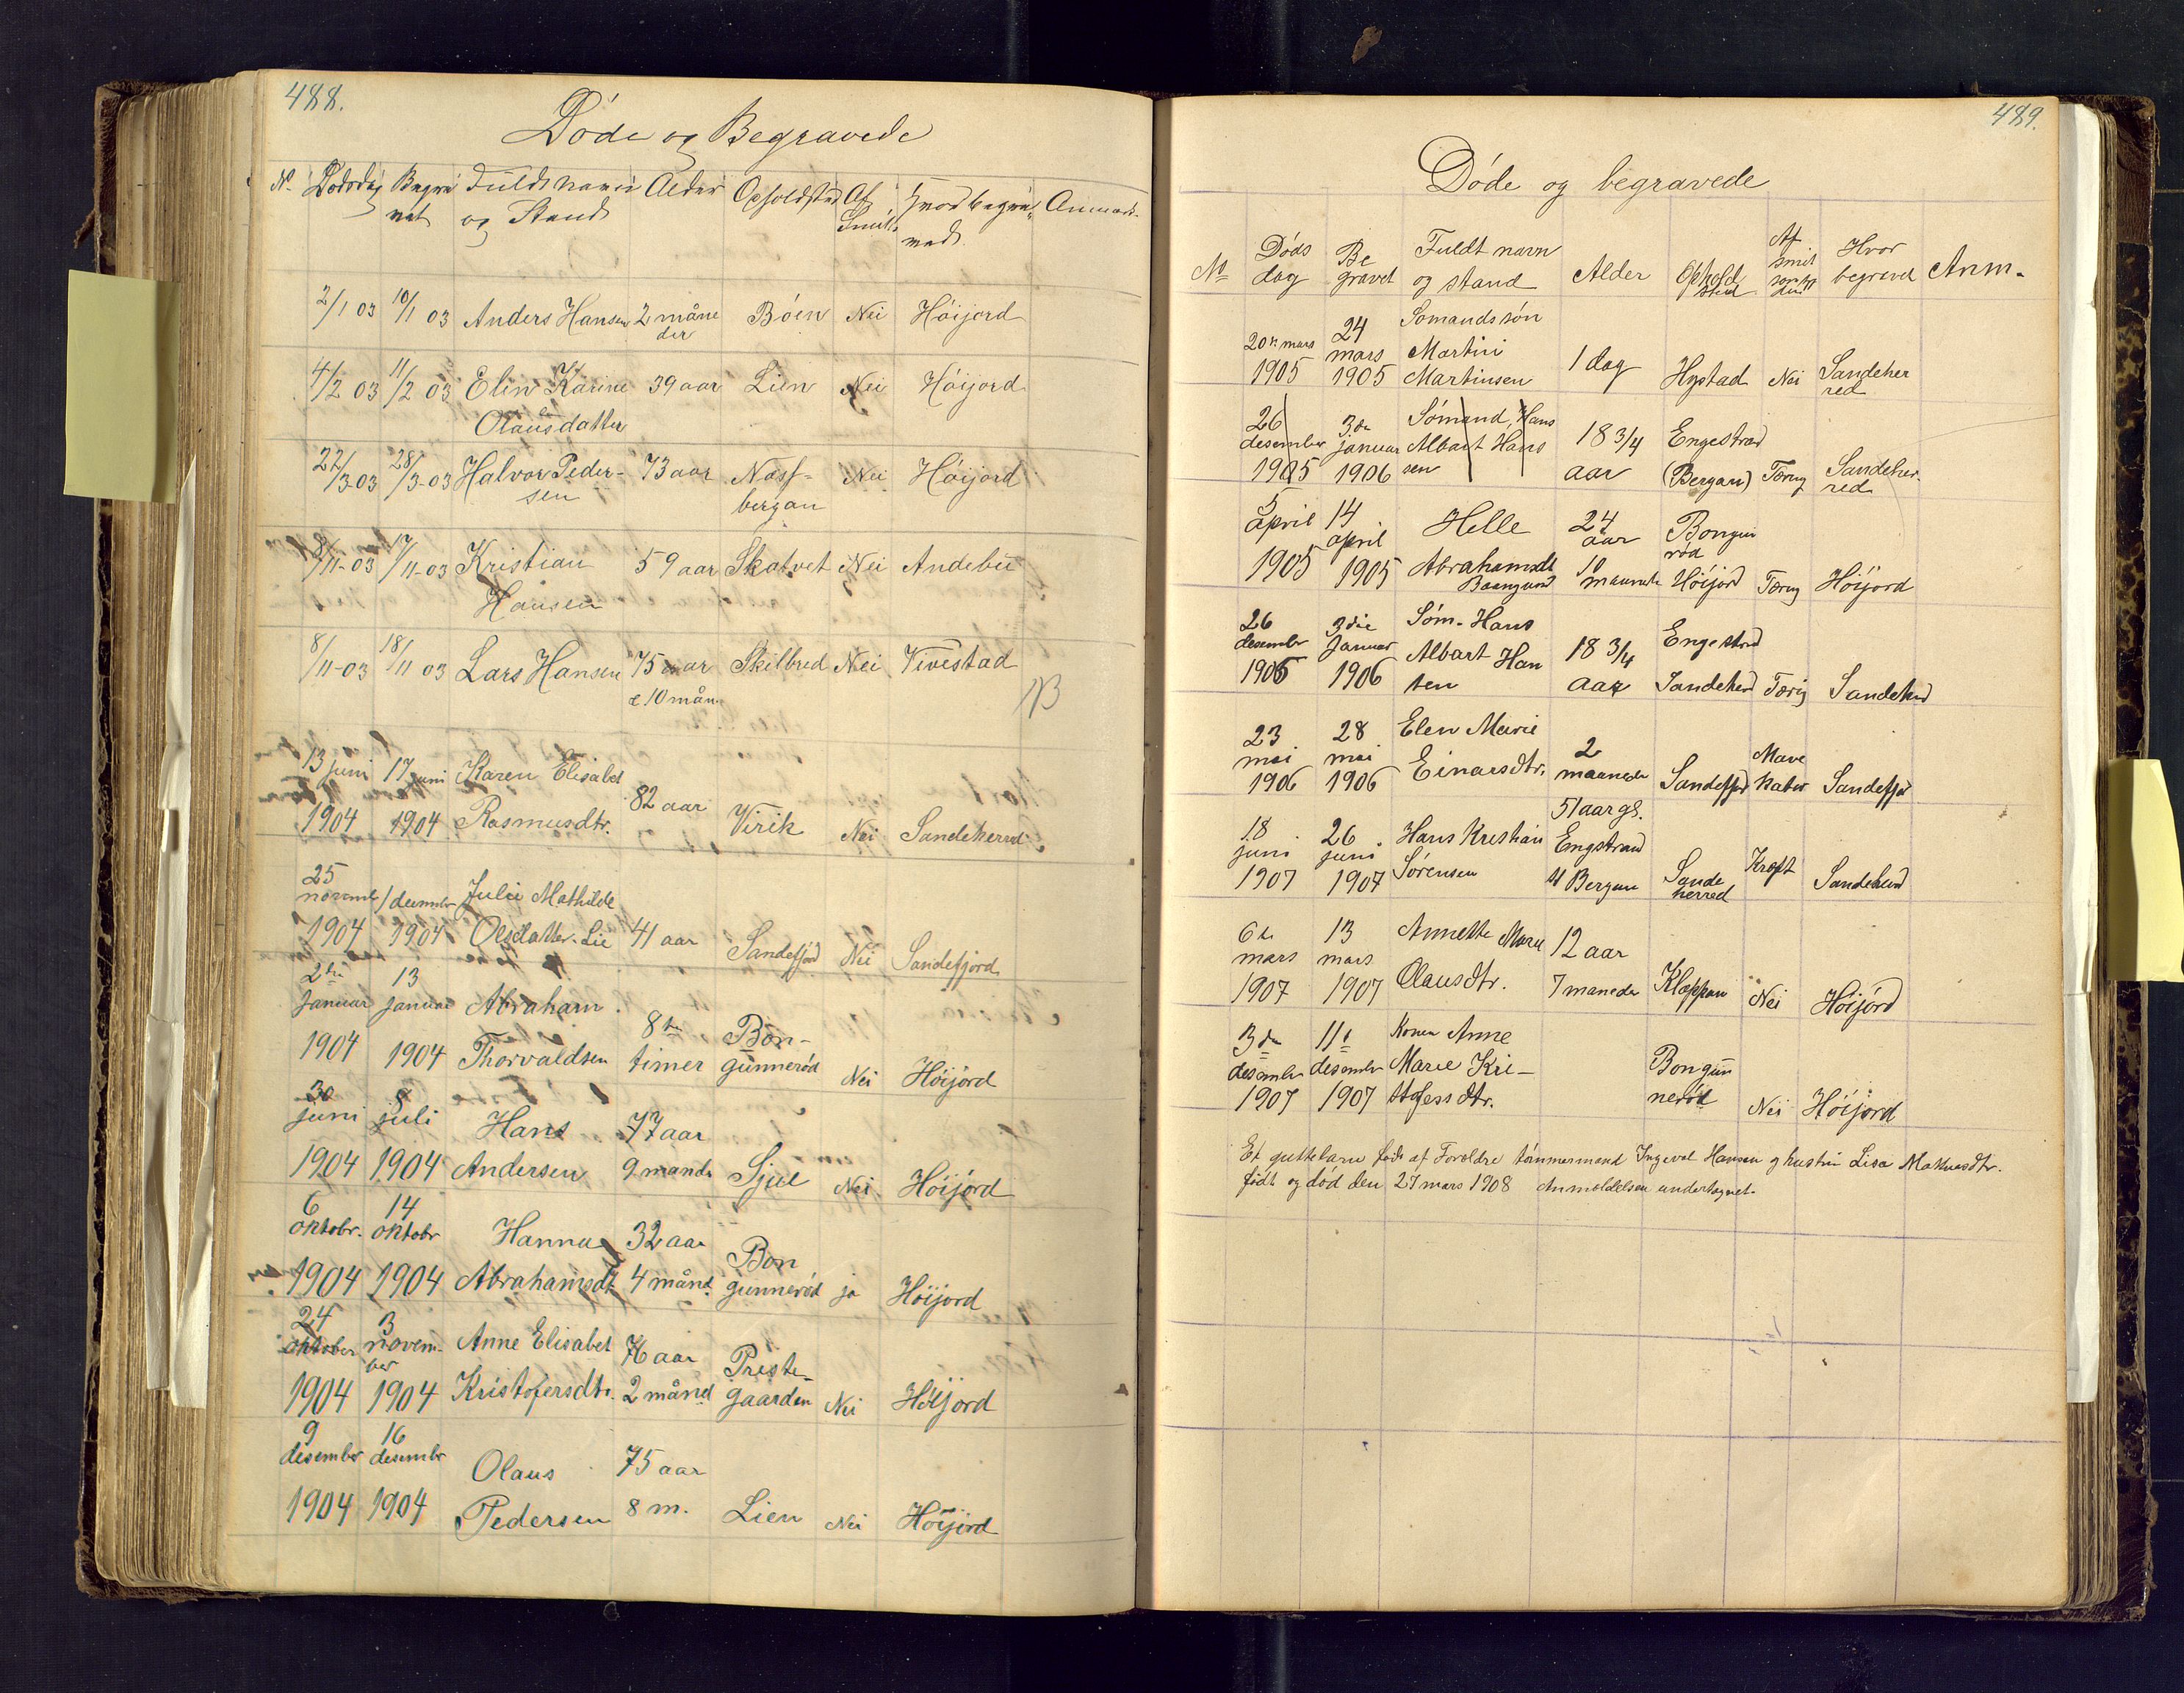 488.
Døde og Begravede
N. Dødsdag Begravet Fuldt navn og Stand Alder Opholdsted Af Smits. Hvor begravet Anmærk.
2/1 03 10/1 03 Anders Hansen 2 måneder Bóen Nei Höijord
4/2 03 11/2 03 Elin Karine Olausdatter 39 aar Lien Nei Höijord
22/3-03 28/3-03 Halvor Pedersen 73 aar Nasfbergan Nei Höijord
8/11-03 17/11-03 Kristian Hansen 59 aar Skatvet Nei Andebu
8/11-03 18/11 03 Lars Hansen 75 aar & 10 mån. Skilbred Nei Vivestad
13 juni 1904 17 juni 1904 Karen Elisabet Rasmusdtr. 82 aar Virik Nei Sandeherred
25 novemb 1904 1 decembr 1904 Julie Mathilde Olsdatter Lie 41 aar Sandefjord Nei Sandefjord
2den Januar 1904 13 januar 1904 Abraham Thorvaldsen 8te timer Bongunnerød Nei Höijord
30 juni 1904 8 juli 1904 Hans Andersen 77 aar 9 mand. Sjue Nei Höijord
6 oktobr. 1904 14 oktobr 1904 Hanna Abrahamsdt 32 aar 4 månd. Bongunnerød ja Höijord
24 oktober 1904 3 november 1904 Anne Elisabet Kristofersdtr. 76 aar 2 månd Prestegaarden Nei Höijord
9 desember 1904 16 desembr 1904 Olaus Pedersen 75 aar 8 m. Lien Nei Höijord
489.
Døde og begravede
No Døds dag Be gravet Fuldt navn og stand Alder Ophold sted Af smit som sot Hvor begravet Anm.
20de mars 1905 24 mars 1905 Somands søn Martin Martinsen 1 dag Hystad Nei Sandeherred
26 desember 1905 3de januar 1906 Sømand, Hans Albart Hanssen 18 3/4 aar Engestrand (Bergan) Tæring Sandeherred
5 april 1905 14 april 1905 Helle Abrahamsdt 24 aar 10 maaneder Bongunrød Höijord Tæring Höijord
26 desembr 1905 3die Januar 1906 Søm. Hans Albart Hansen 18 3/4 aar Engestrad Sandeherd Tæring Sandeherd
23 mai 1906 28 mai 1906 Elen Marie Einarsdtr. 2 maaneder Sandefjord Mave Katar Sandefjor
18 juni 1907 26 juni 1907 Hans Kristian Sørensen 51 aar gl. Engstrand Bergan Sandeherred Kræft Sandeherd
6te mars 1907 13 mars 1907 Annette Marie Olausdtr. 12 aar 7 maneder Klappan Nei Höijord
3de desembr 1907 11te desembr 1907 Konen Anne Marie Kristofessdtr. Bongunnerød Nei Höijord
Et guttebarn født af Foreldre tømmermand Ingeval Hansen og hustru Lisa Mathiasdtr.
født og død den 27 mars 1908 Anmeldelsen undertegnet.